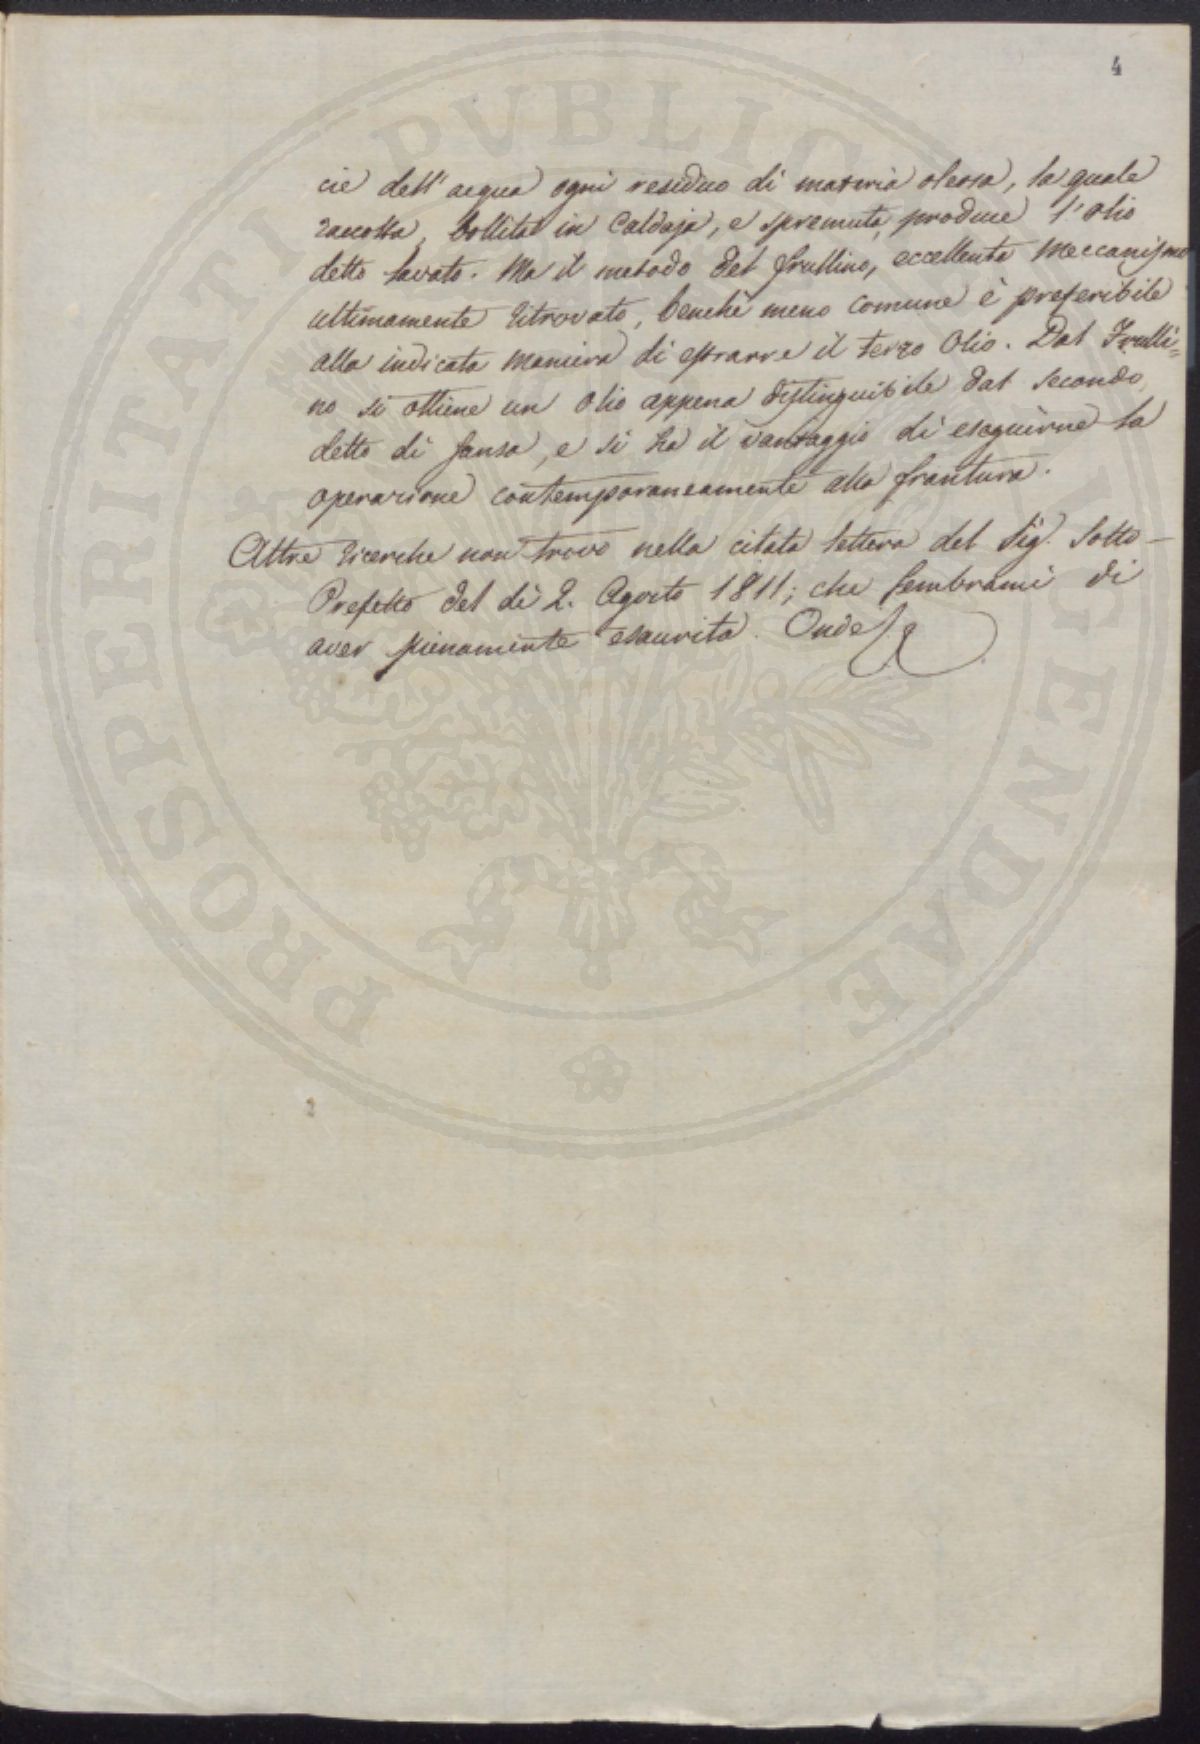 4
cie dell'acqua ogni residuo di materia oleosa, la quale
raccolta, bollita in Caldaja, e spremuta, produce l'olio
detto lavato. Ma il metodo del frullino, eccellente Meccanismo
ultimamente ritrovato, benchè meno comune è preferibile
alla indicata maniera di estrarre il terzo Olio. Dal Frulli=
no si ottiene un Olio appena distinguibile dal secondo,
detto di sansa, e si ha il vantaggio di eseguirne la
operazione contemporaneamente alla frantura.
Altre ricerche non trovo nella citata lettera del Sig. Sotto-
Prefetto del dì 2. Agosto 1811; che sembrami di
aver pienamente esaurita. Onde
PROSPERITATI PVBLICAE AVGENDAE